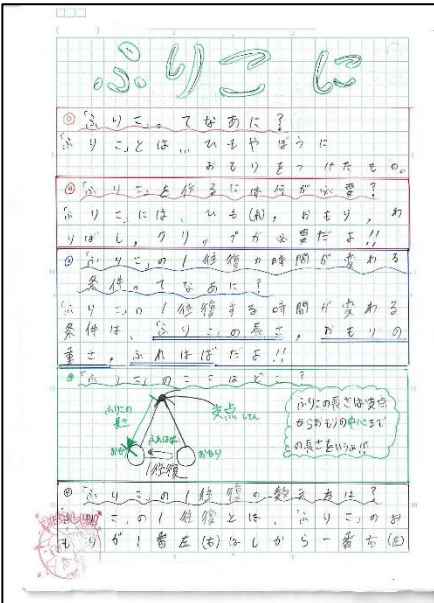 ふりこに
◎「ふりこ」ってなあに?
「ふりこ」とは、ひもやぼうに
おもりをつけたもの。
◎「ふりこ」を作るには何が必要?
「ふりこ」には、ひも(糸)、おもり、わ
りばし、クリップが必要だよ!!
◎「ふりこ」の1往復の時間が変わる
条件ってなあに?
「ふりこ」の1往復する時間が変わる
条件は、「ふりこ」の長さ、おもりの
重さ、ふれはばだよ!!
◎「ふりこ」のここはどこ?
ふりこの
長さ
支点 してん
ふれはば
おもり
おもり
1往復
ふりこの長さは支点
からおもりの中心まで
の長さをいうよ!!
◎「ふりこ」の1往復の数え方は?
「ふりこ」の1往復とは、「ふりこ」のお
もりが1番左(右)はしから一番右(左)